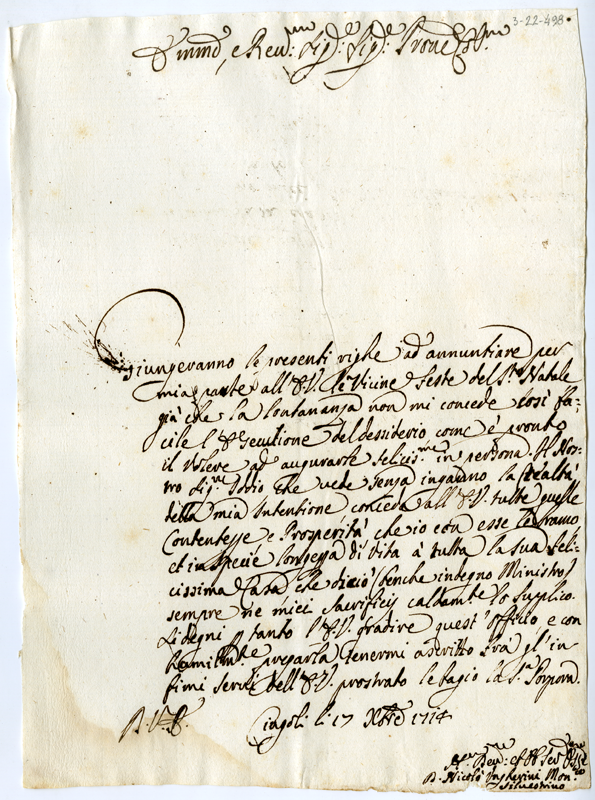 3-22-498.
Emmo, e Reu: Sig:e Sig:e Prone
Giungeranno le presenti righe ad annuntiare per
mia parte all'E.V. le Vicine Feste del S. Natale
già che la lontananza non mi concede così fa=
cile l'Essecutione del dessiderio, come è pronto
il Volere ad augurarle felicis.me in persona. Il Nos=
tro Sig.re Iddio che vede senza inganno la Realtà
della mia Intentione conceda all'E.V. tutte quelle
Contentesse e Prosperità che io con esse le bramo
et in Specie longezza di Vita à tutta la sua feli=
cissima Casa che di ciò (benche indegno Ministro)
sempre ne miei Sacrificij caldam.te lo Supplico.
Si degni tanto l'E.V. gradire quest'officio e con
humilm.te pregarla tenermi ascritto frà gl'in
fimi servi dell'E.V. prostrato le bagio la S. Porpora.
D. V. E. Cingoli li 17 Xbre 1714
D. Nicolò Mon.
Silvestrino